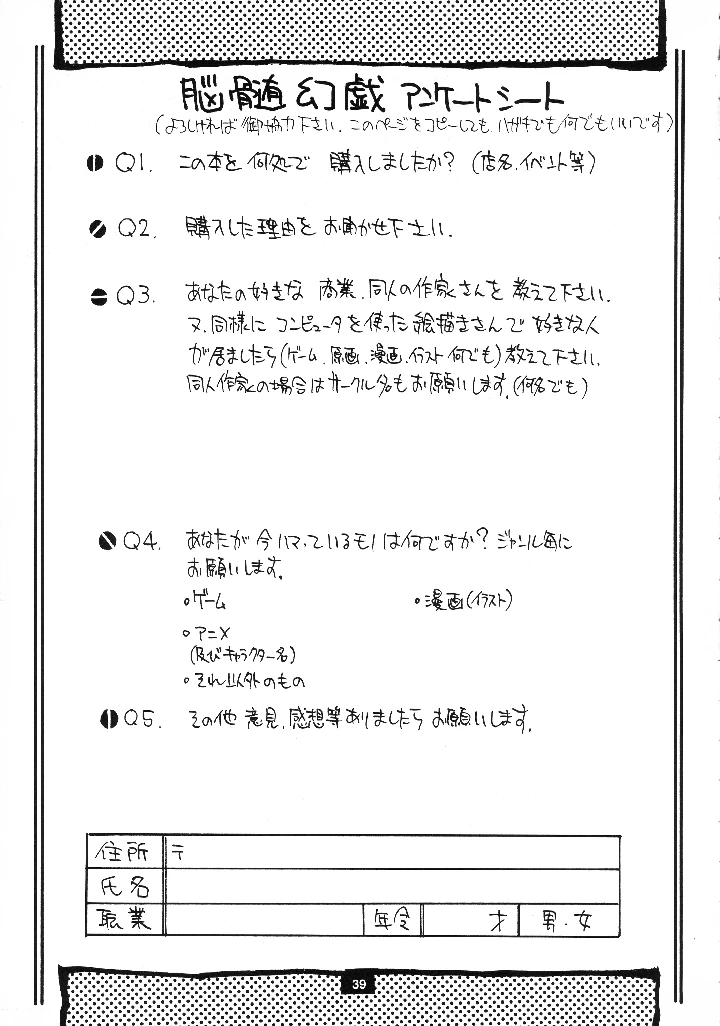 脳髄幻戯 アンケートシート
(よろしければ御協力下さい、このページをコピーしても、ハガキでも何でもいいです)
Q1. この本を何処で 購入しましたか? (店名、イベント等)
Q2. 購入した理由を お聞かせ下さい.
Q3. あなたの好きな 商業、同人の作家さんを 教えて下さい.
又、同様に コンピュータを使った絵描きさんで 好きな人
が居ましたら(ゲーム、原画、漫画、イラスト 何でも)教えて下さい.
同人作家の場合はサークル名もお願いします.(何名でも)
Q4. あなたが 今ハマっているモノは何ですか? ジャンル毎に
お願いします.
。ゲーム 。漫画(イラスト)
。アニメ
(及びキャラクター名)
。それ以外のもの
Q5. その他 意見、感想等ありましたら お願いします.
住所 〒
氏名
職業 年令 才 男・女
39